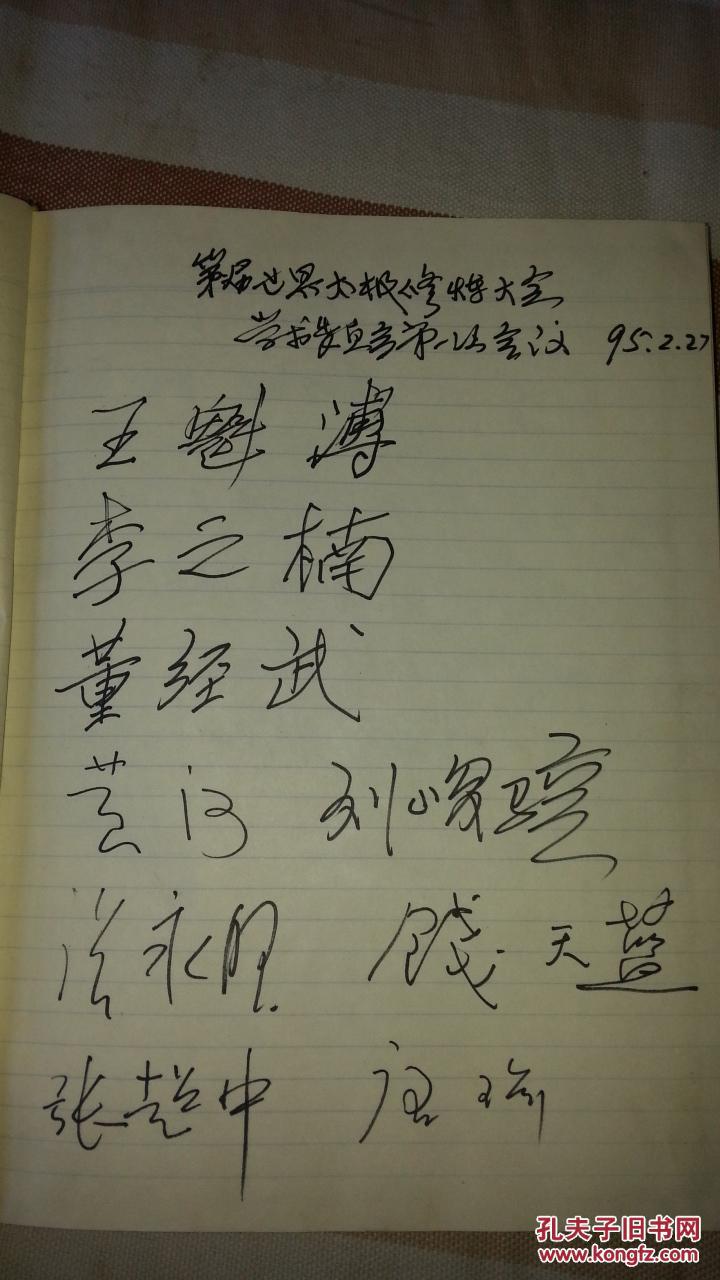 第一届世界太极修炼大会
学术委员会第一次会议 95.2.27
王魁溥
李之楠
董经武
黄河 刘峻骧
永 錢天
张超中 唐瑜
孔夫子旧书网
www.kongfz.com